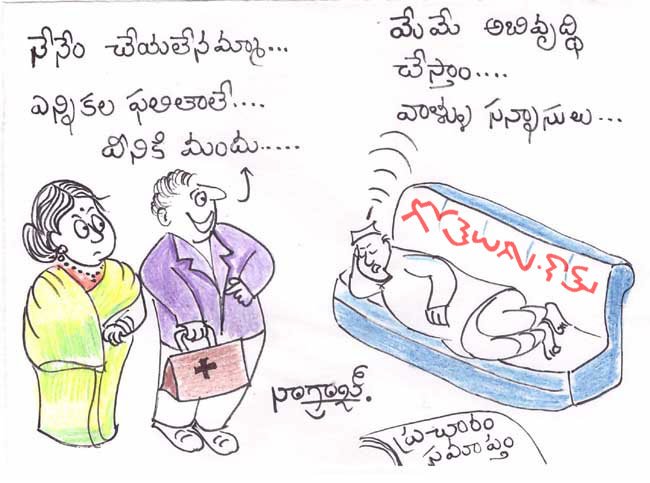 నేనేం చేయలేనమ్మా...
ఎన్నికల ఫలితాలే....
దీనికి మందు.....
మేమే అభివృద్ధి
చేస్తాం....
వాళ్ళు సన్నాసులు...
గోతెలుగు.కామ్
నాగ్రాజ్.
ప్రచారం
సమాప్తం